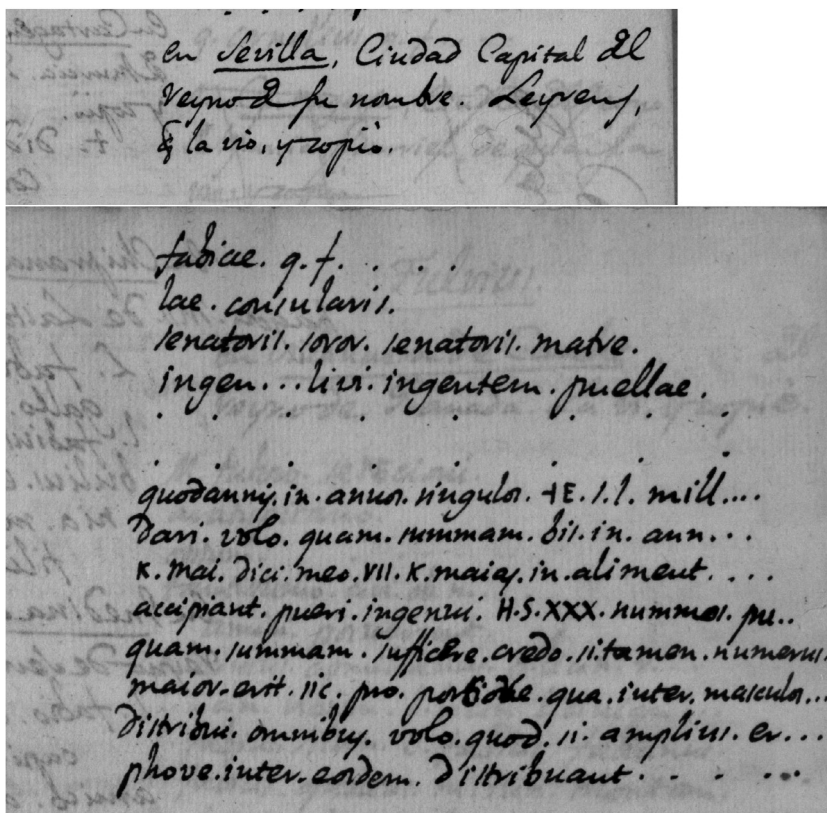 en Sevilla, Ciudad Capital del
reyno de su nombre. Leyrens,
q̃ la vio, y copiò.
fabiae. q. f. . . .
lae. consularis.
senatoris. soror. senatoris. matre.
ingen... livi. ingentem. puellae.
. . . . . . .
quodannis. in. annos. singulos. +E. s. l. mill....
dari. volo. quam. summam. bis. in. ann...
K. mai. dici. meo. VII. K. maias. in. aliment. . . .
accipiant. pueri. ingenui. H.S. XXX. nummos. pu..
quam. summam. sufficere. credo. si. tamen. numerus.
maior. erit. sic. pro. portione. qua. inter. masculos...
distribui. omnibus. volo. quod. si. amplius. er...
phove. inter. eosdem. distribuant. . . ...